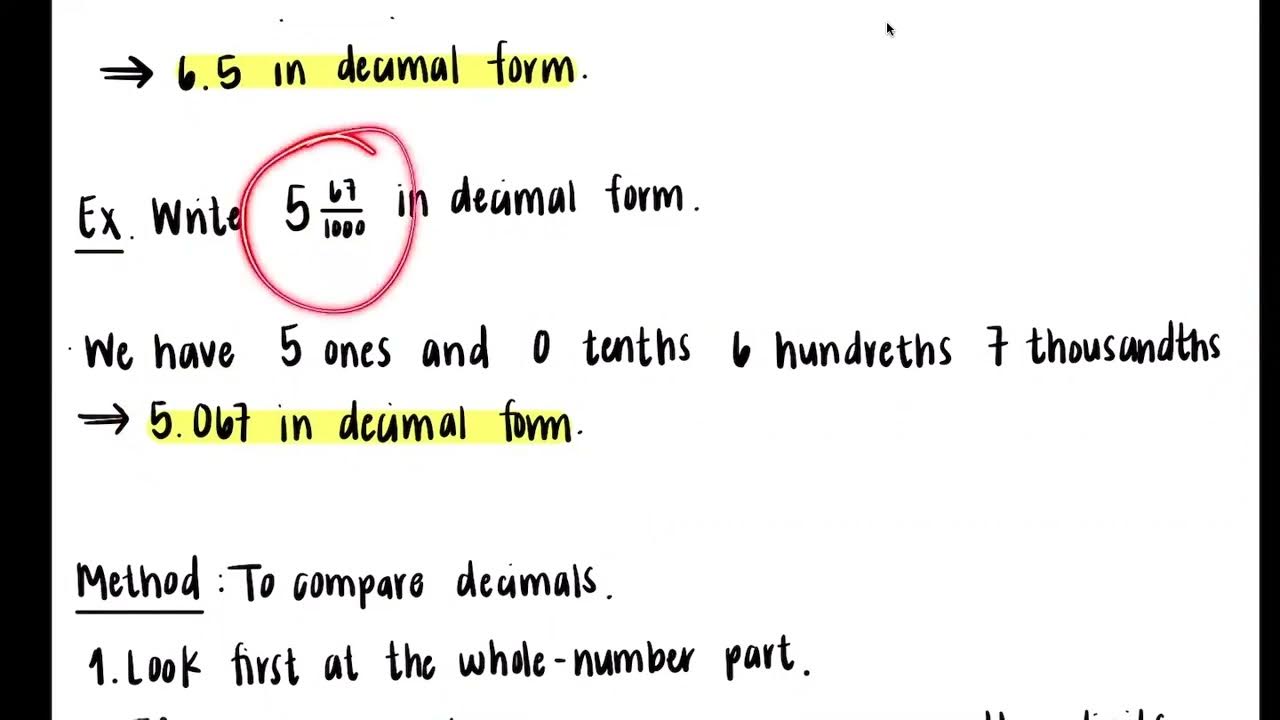 ⇒ 6.5 in decimal form.
Ex. Write 5 67/1000 in decimal form.
We have 5 ones and 0 tenths 6 hundreths 7 thousandths
⇒ 5.067 in decimal form.
Method : To compare decimals.
1. Look first at the whole-number part.